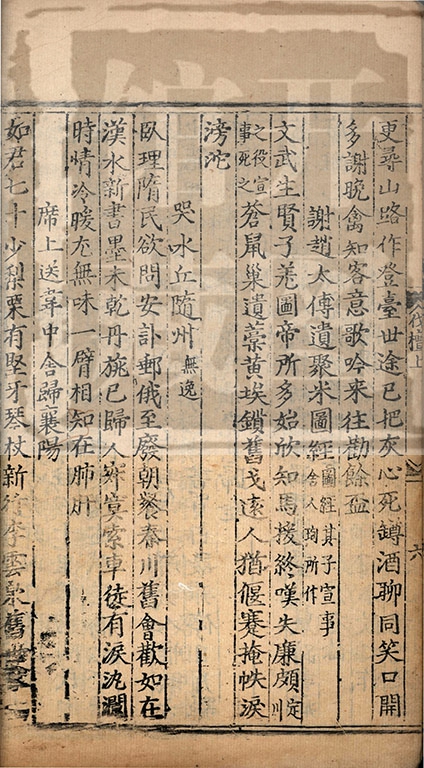 更尋山路作登臺世途已把灰心死罇酒聊同笑口開
多謝晚禽知客意歌吟來往勸餘盃
謝趙太傅遺聚米圖經圖經其子宣事舍人珣所作
文武生賢子羌圖帝所多始欣知馬援終嘆失廉頗定川
之役宣事死之蒼鼠巢遺藁黃埃鎖舊戈遠人猶偃蹇掩帙淚
滂沱
哭水丘隨州無逸
臥理隋民欲問安訃郵俄至廢朝飡秦川舊會歡如在
漢水新書墨未乾丹旐已歸人寂寞索車徒有淚汍瀾
時情冷暖尤無味一臂相知在肺肝
席上送韋中舍歸襄陽
如君七十少梨栗有堅牙琴杖新行李雲泉舊
伐檀上
六